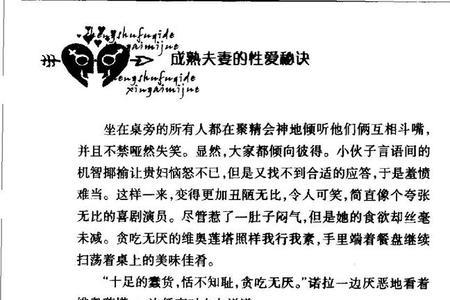 chengshufuqide
xingaimijue
成熟夫妻的性爱秘诀
chengshufuqide
xingaimijue
坐在桌旁的所有人都在聚精会神地倾听他们俩互相斗嘴，
并且不禁哑然失笑。显然，大家都倾向彼得。小伙子言语间的
机智揶揄让贵妇恼怒不已，但是又找不到合适的应答，于是羞愤
难当。这样一来，变得更加丑陋无比，令人可笑，简直像个夸张
无比的喜剧演员。尽管惹了一肚子闷气，但是她的食欲却丝毫
未减。贪吃无厌的维奥莲塔照样我行我素，手里端着餐盘继续
扫荡着桌上的美味佳肴。
“十足的蠢货，恬不知耻，贪吃无厌。”诺拉一边厌恶地看着